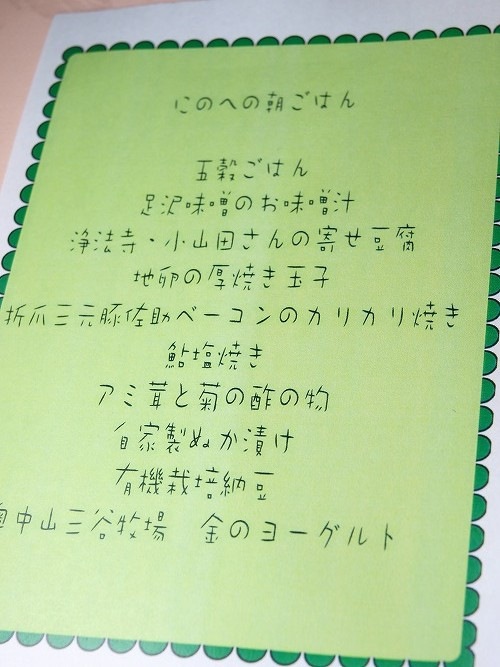 にのへの朝ごはん
五穀ごはん
足沢味噌のお味噌汁
浄法寺・小山田さんの寄せ豆腐
地卵の厚焼き玉子
折爪三元豚佐助ベーコンのカリカリ焼き
鮎塩焼き
アミ茸と菊の酢の物
自家製ぬか漬け
有機栽培納豆
奥中山三谷牧場　金のヨーグルト